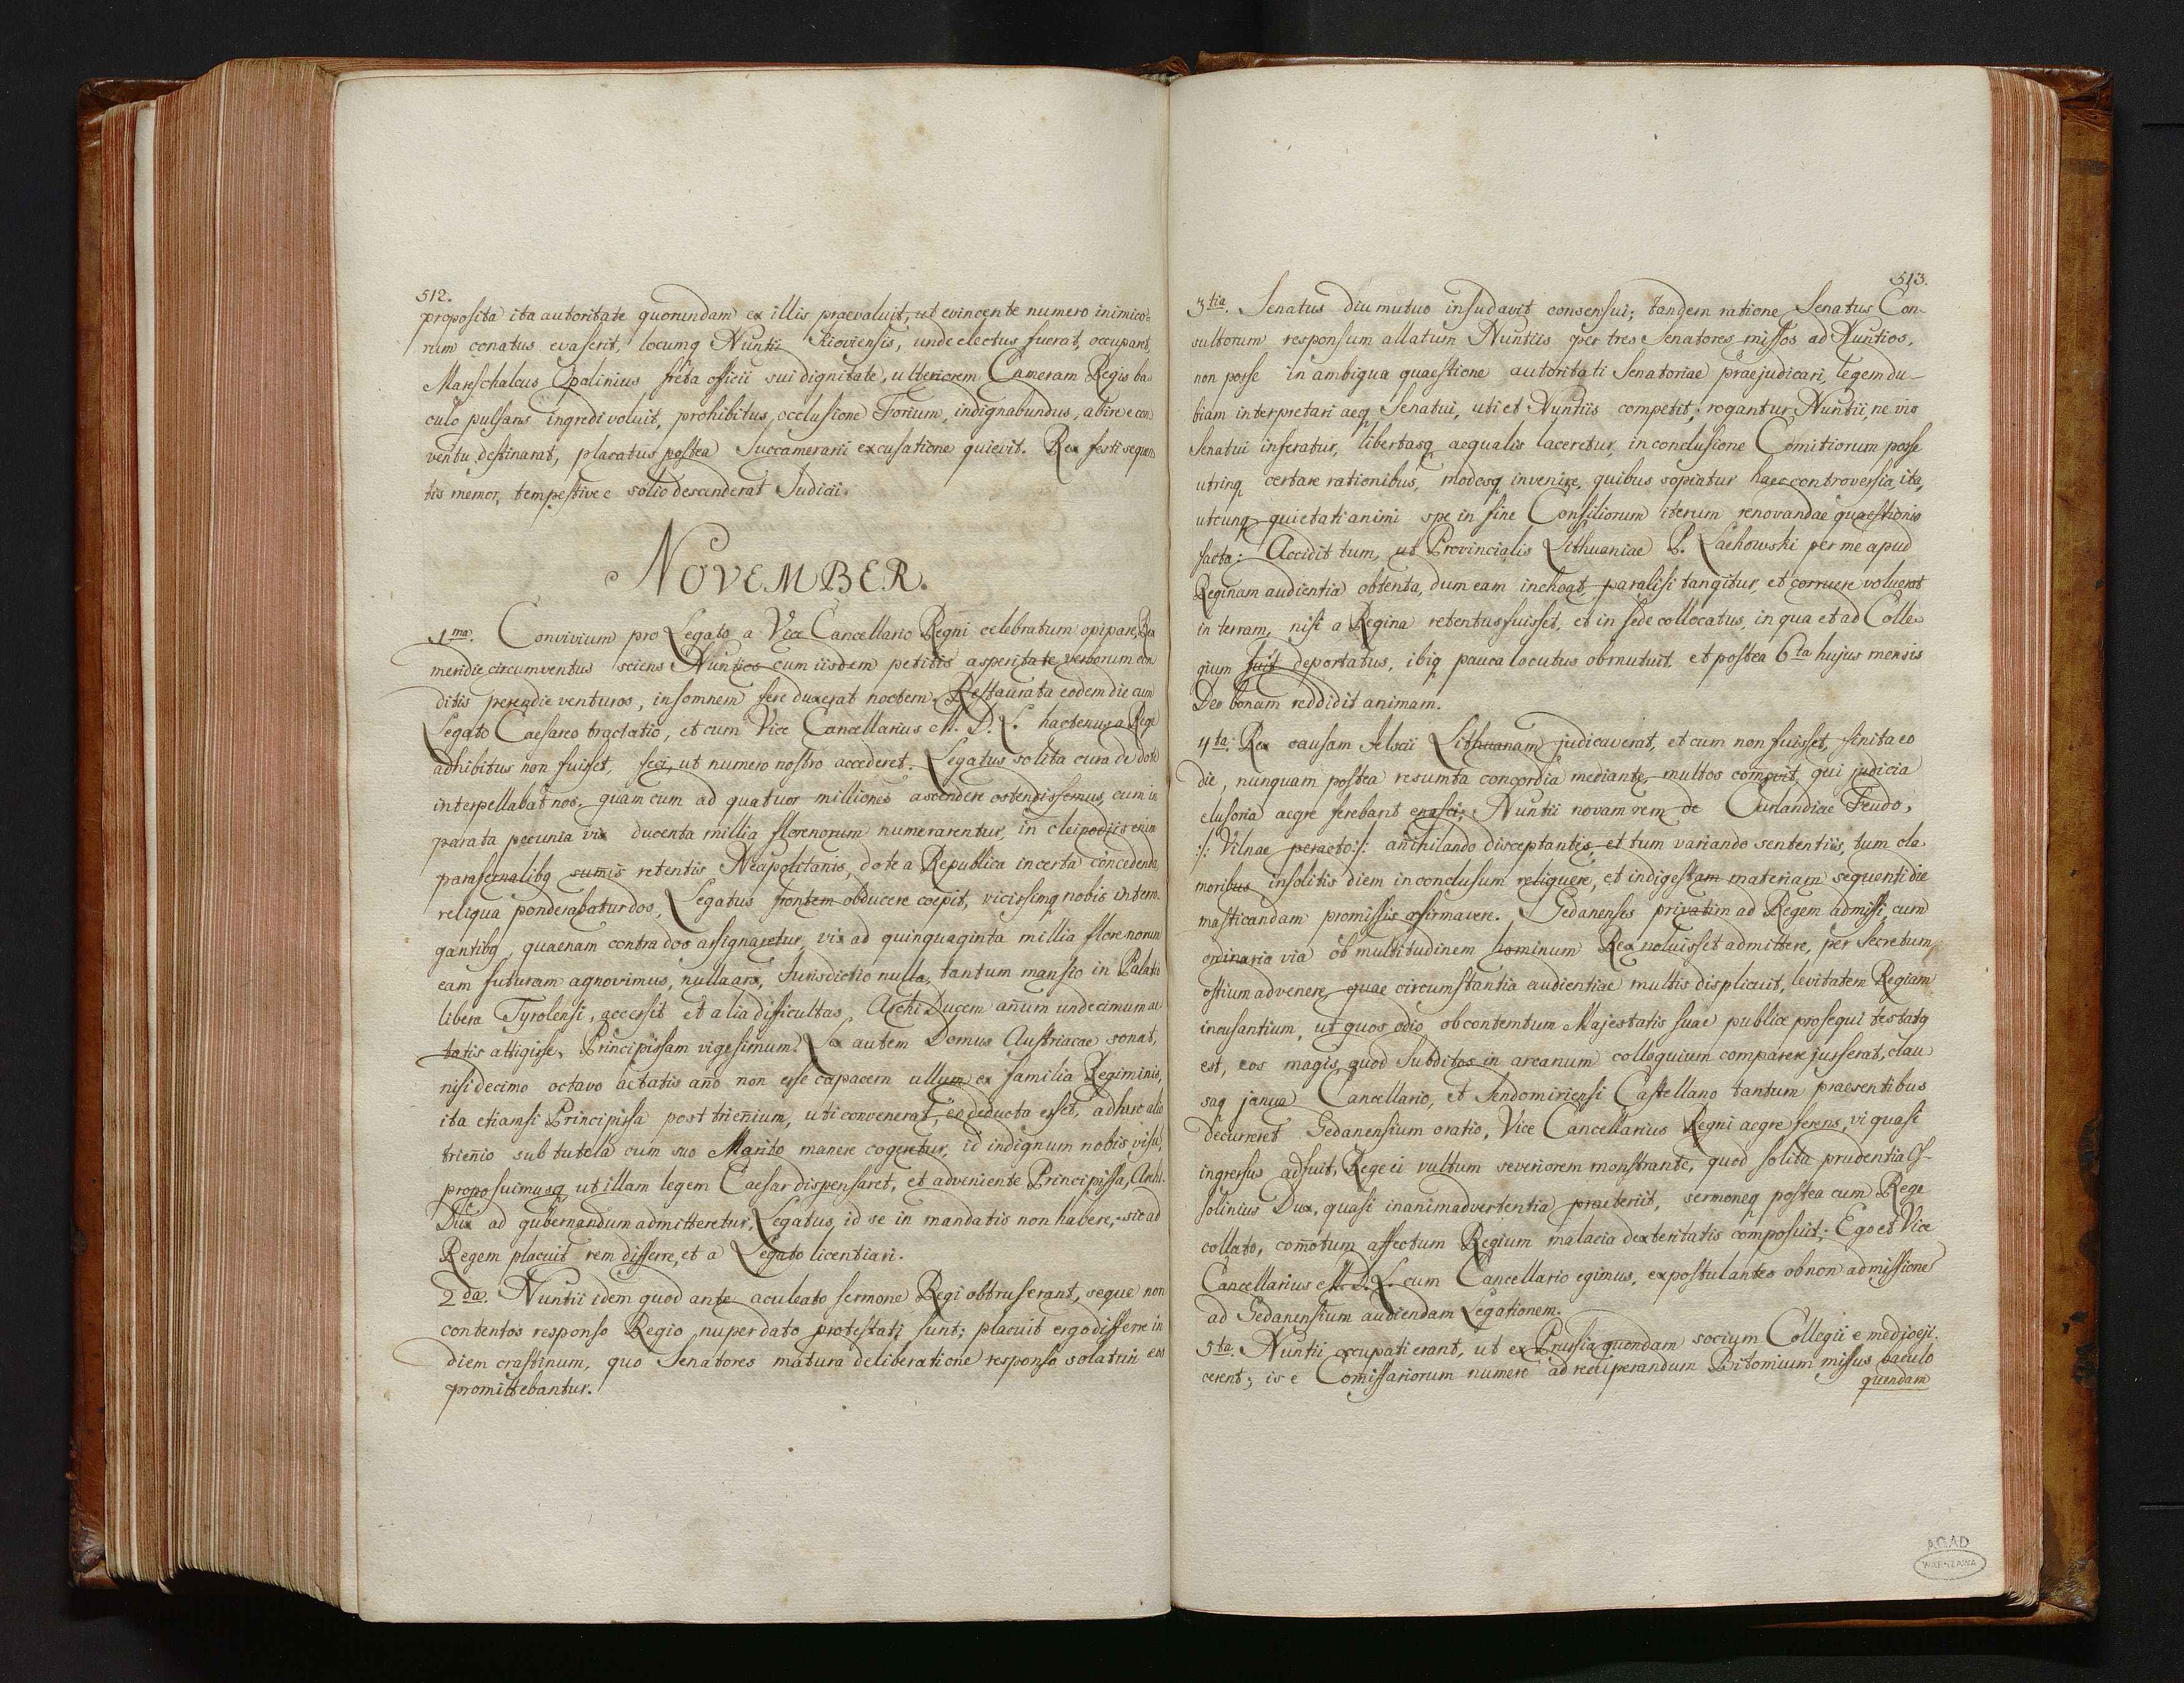 512.
proposita ita autoritate quorundam ex illis praevaluit, ut evincente numero inimico-
rum conatus evaserit, locumq Nuntii Kioviensis, unde electus fuerat, occuparet,
Mareschalcus Opalinius freta officii sui dignitate, ulteriorem Cameram Regis ba
culo pulsans ingredi voluit, prohibitus occlusione Forium, indignabundus, abire e con
ventu destinarat, placatus postea Succamerarii excusatione quievit. Rex festi sequen
tis memor, tempestive e solio descenderat Judicii.
NOVEMBER.
1ma. Convivium pro Legato a Vice Cancellario Regni celebratum opipare, Rex
meridie circumventus sciens Nuntios cum iisdem petitis asperitate verborum con
ditis perendie venturos, insomnem fere duxerat noctem. Restaurata eodem die cum
Legato Caesareo tractatio, et cum Vice Cancellarius M. D. L. hactenus a Rege
adhibitus non fuisset, feci, ut numero nostro accederet. Legatus solita cura de dote
interpellabat nos, quam cum ad quatuor milliones ascendere ostendissemus, cum in
parata pecunia vix ducenta millia florenorum numerarentur, in cleipodiis enim
parafernalibq sum̄is retentis Neapolitanis, dote a Republica incerta concedenda,
reliqua ponderabatur dos, Legatus frontem obducere coepit, vicissimq nobis interro
gantibq, quaenam contra dos assignaretur, vix ad quinquaginta millia florenorum
eam futuram agnovimus, nulla arx, Jurisdictio nulla, tantum mansio in Palatio
libera Tyrolensi, accessit et alia difficultas, Archi Ducem an̄um undecimum ae
tatis attigisse, Principissam vigesimum. Lex autem Domus Austriacae sonat,
nisi decimo octavo aetatis an̄o non esse capacem ullum ex familia Regiminis,
ita etiamsi Principissa post trien̄ium, uti convenerat, eo deducta esset, adhuc alio
trien̄io sub tutela cum suo Marito manere cogeretur, id indignum nobis visu,
proposuimusq, ut illam legem Caesar dispensaret, et adveniente Principissa, Archi-
Dux ad gubernandum admitteretur, Legatus, id se in mandatis non habere, sic ad
Regem placuit rem differre, et a Legato licentiari.
2da. Nuntii idem quod ante aculeato sermone Regi obtruserant, seque non
contentos responso Regio nuper dato protestati sunt; placuit ergo differre in
diem crastinum, quo Senatores matura deliberatione responso solaturi eos
promittebantur.
513.
3tia. Senatus diu mutuo insudavit consensui; tandem ratione Senatus Con-
sultorum responsum allatum Nuntiis per tres Senatores missos ad Nuntios,
non posse in ambigua quaestione autoritati Senatoriae praejudicari, legem du-
biam interpretari aeq Senatui, uti et Nuntiis competit; rogantur Nuntii, ne vis
Senatui inferatur, libertasq aequalis laceretur, in conclusione Comitiorum posse
utrinq certare rationibus, modosq invenire, quibus sopiatur haec controversia, ita,
utcunq quietati animi spe in fine Consiliorum iterum renovandae quaestionis
facta: Accidit tum, ut Provincialis Lithuaniae P. Lachowski per me apud
Reginam audientia obtenta, dum eam inchoat, paralisi tangitur, et corruere voluerat
in terram, nisi a Regina retentus fuisset, et in sede collocatus, in qua et ad Colle-
gium fuit deportatus, ibiq pauca locutus obmutuit et postea 6ta hujus mensis
Deo bonam reddidit animam.
4ta. Rex causam Jelscii Lithuanam judicaverat, et cum non fuisset, finita eo
die, nunquam postea resumta concordia mediante, multos com̄ovit, qui judicia
elusoria aegre ferebant enasci; Nuntii novam rem de Curlandiae Feudo,
:/: Vilnae peracto :/: an̄ihilando disceptantes, et tum variando sententiis, tum cla
moribus insolitis diem inconclusum reliquere, et indigestam materiam sequenti die
masticandam promissis affirmavere. Gedanenses privatim ad Regem admissi, cum
ordinaria via ob multitudinem hominum Rex noluisset admittere, per Secretum
ostium advenere, quae circumstantia audientiae multis displicuit, levitatem Regiam
incusantium, ut quos odio ob contemtum Majestatis suae publice prosequi testatq
est, eos magis, quod Subditos in arcanum colloquium comparere jusserat, clau
saq janua Cancellario, et Sendomiriensi Castellano tantum praesentibus
decurreret Gedanensium oratio, Vice Cancellarius Regni aegre ferens, vi quasi
ingressus adfuit, Rege ei vultum severiorem monstrante, quod solita prudentia Os-
solinius Dux, quasi inanimadvertentia praeteriit, sermoneq postea cum Rege
collato, com̄otum affectum Regium malacia dexteritatis composuit; Ego et Vice
Cancellarius M. D. L. cum Cancellario egimus, expostulantes ob non admissione
ad Gedanensium audiendam Legationem.
5ta. Nuntii occupati erant, ut ex Prussia quendam socium Collegii e medio eji
cerent; is e Com̄issariorum numero ad recuperandum Bitomium missus baculo
quendam
AGAD
WARSZAWA